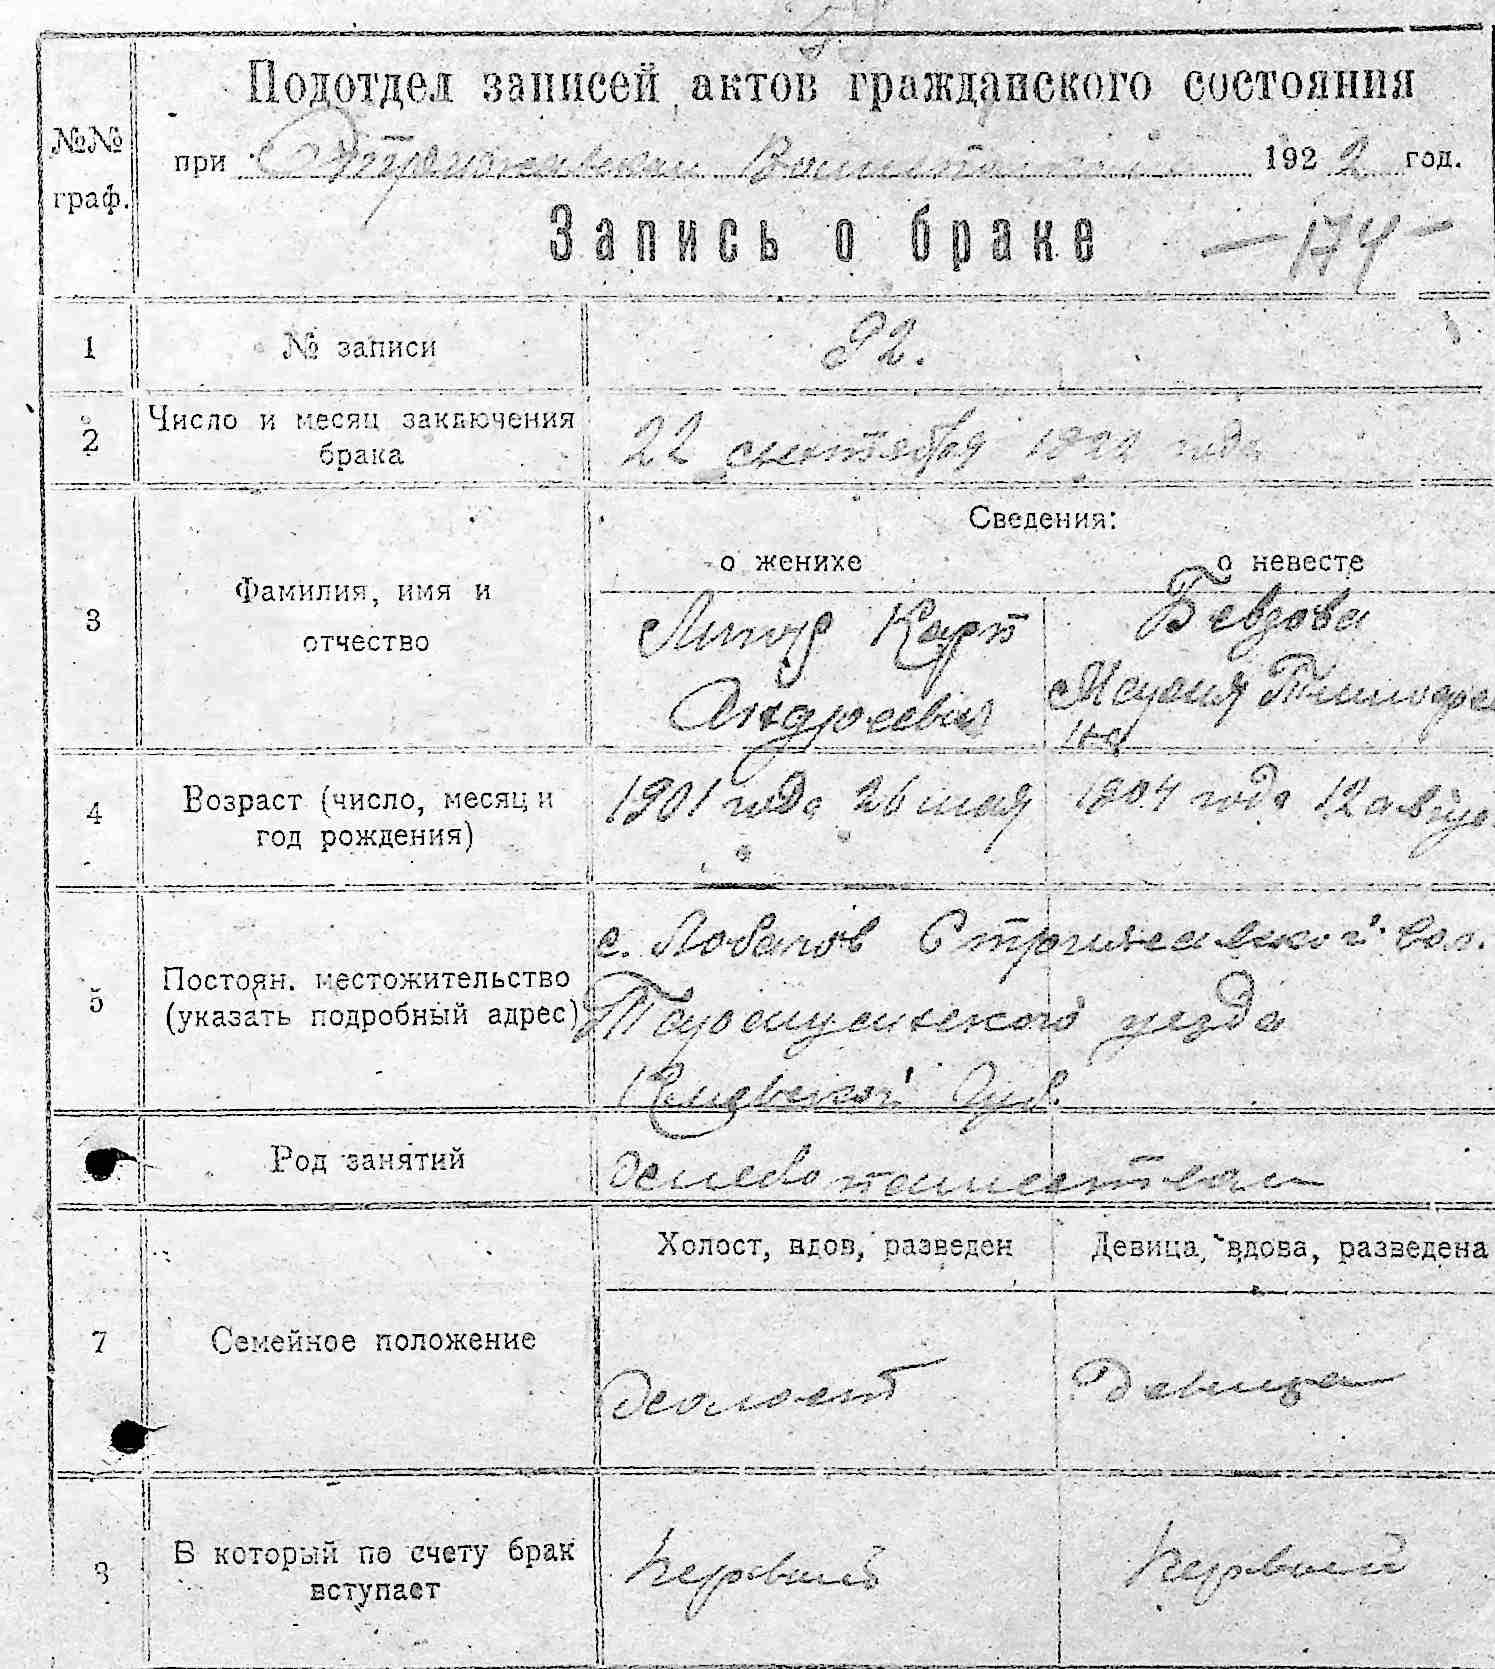 Подотдел записей актов гражданского состояния
№№
граф.
при Стрижавском 1922 год.
Запись о браке
— 174 —
1 № записи 92.
2 Число и месяц заключения
брака
22 сентября 1922 года
Сведения:
о женихе о невесте
3 Фамилия, имя и
отчество
Карп Бевзова
Андреевич Тимофеев
на
4 Возраст (число, месяц и
год рождения)
1901 года 26 мая 1904 года 12 авгус.
5 Постоян. местожительство
(указать подробный адрес)
с. Стрижавской вол.
Таращанского уезда
Киевской Губ.
Род занятий
Холост, вдов, разведен Девица, вдова, разведена
7 Семейное положение
холост девица
8 В который по счету брак
вступает
первый первый